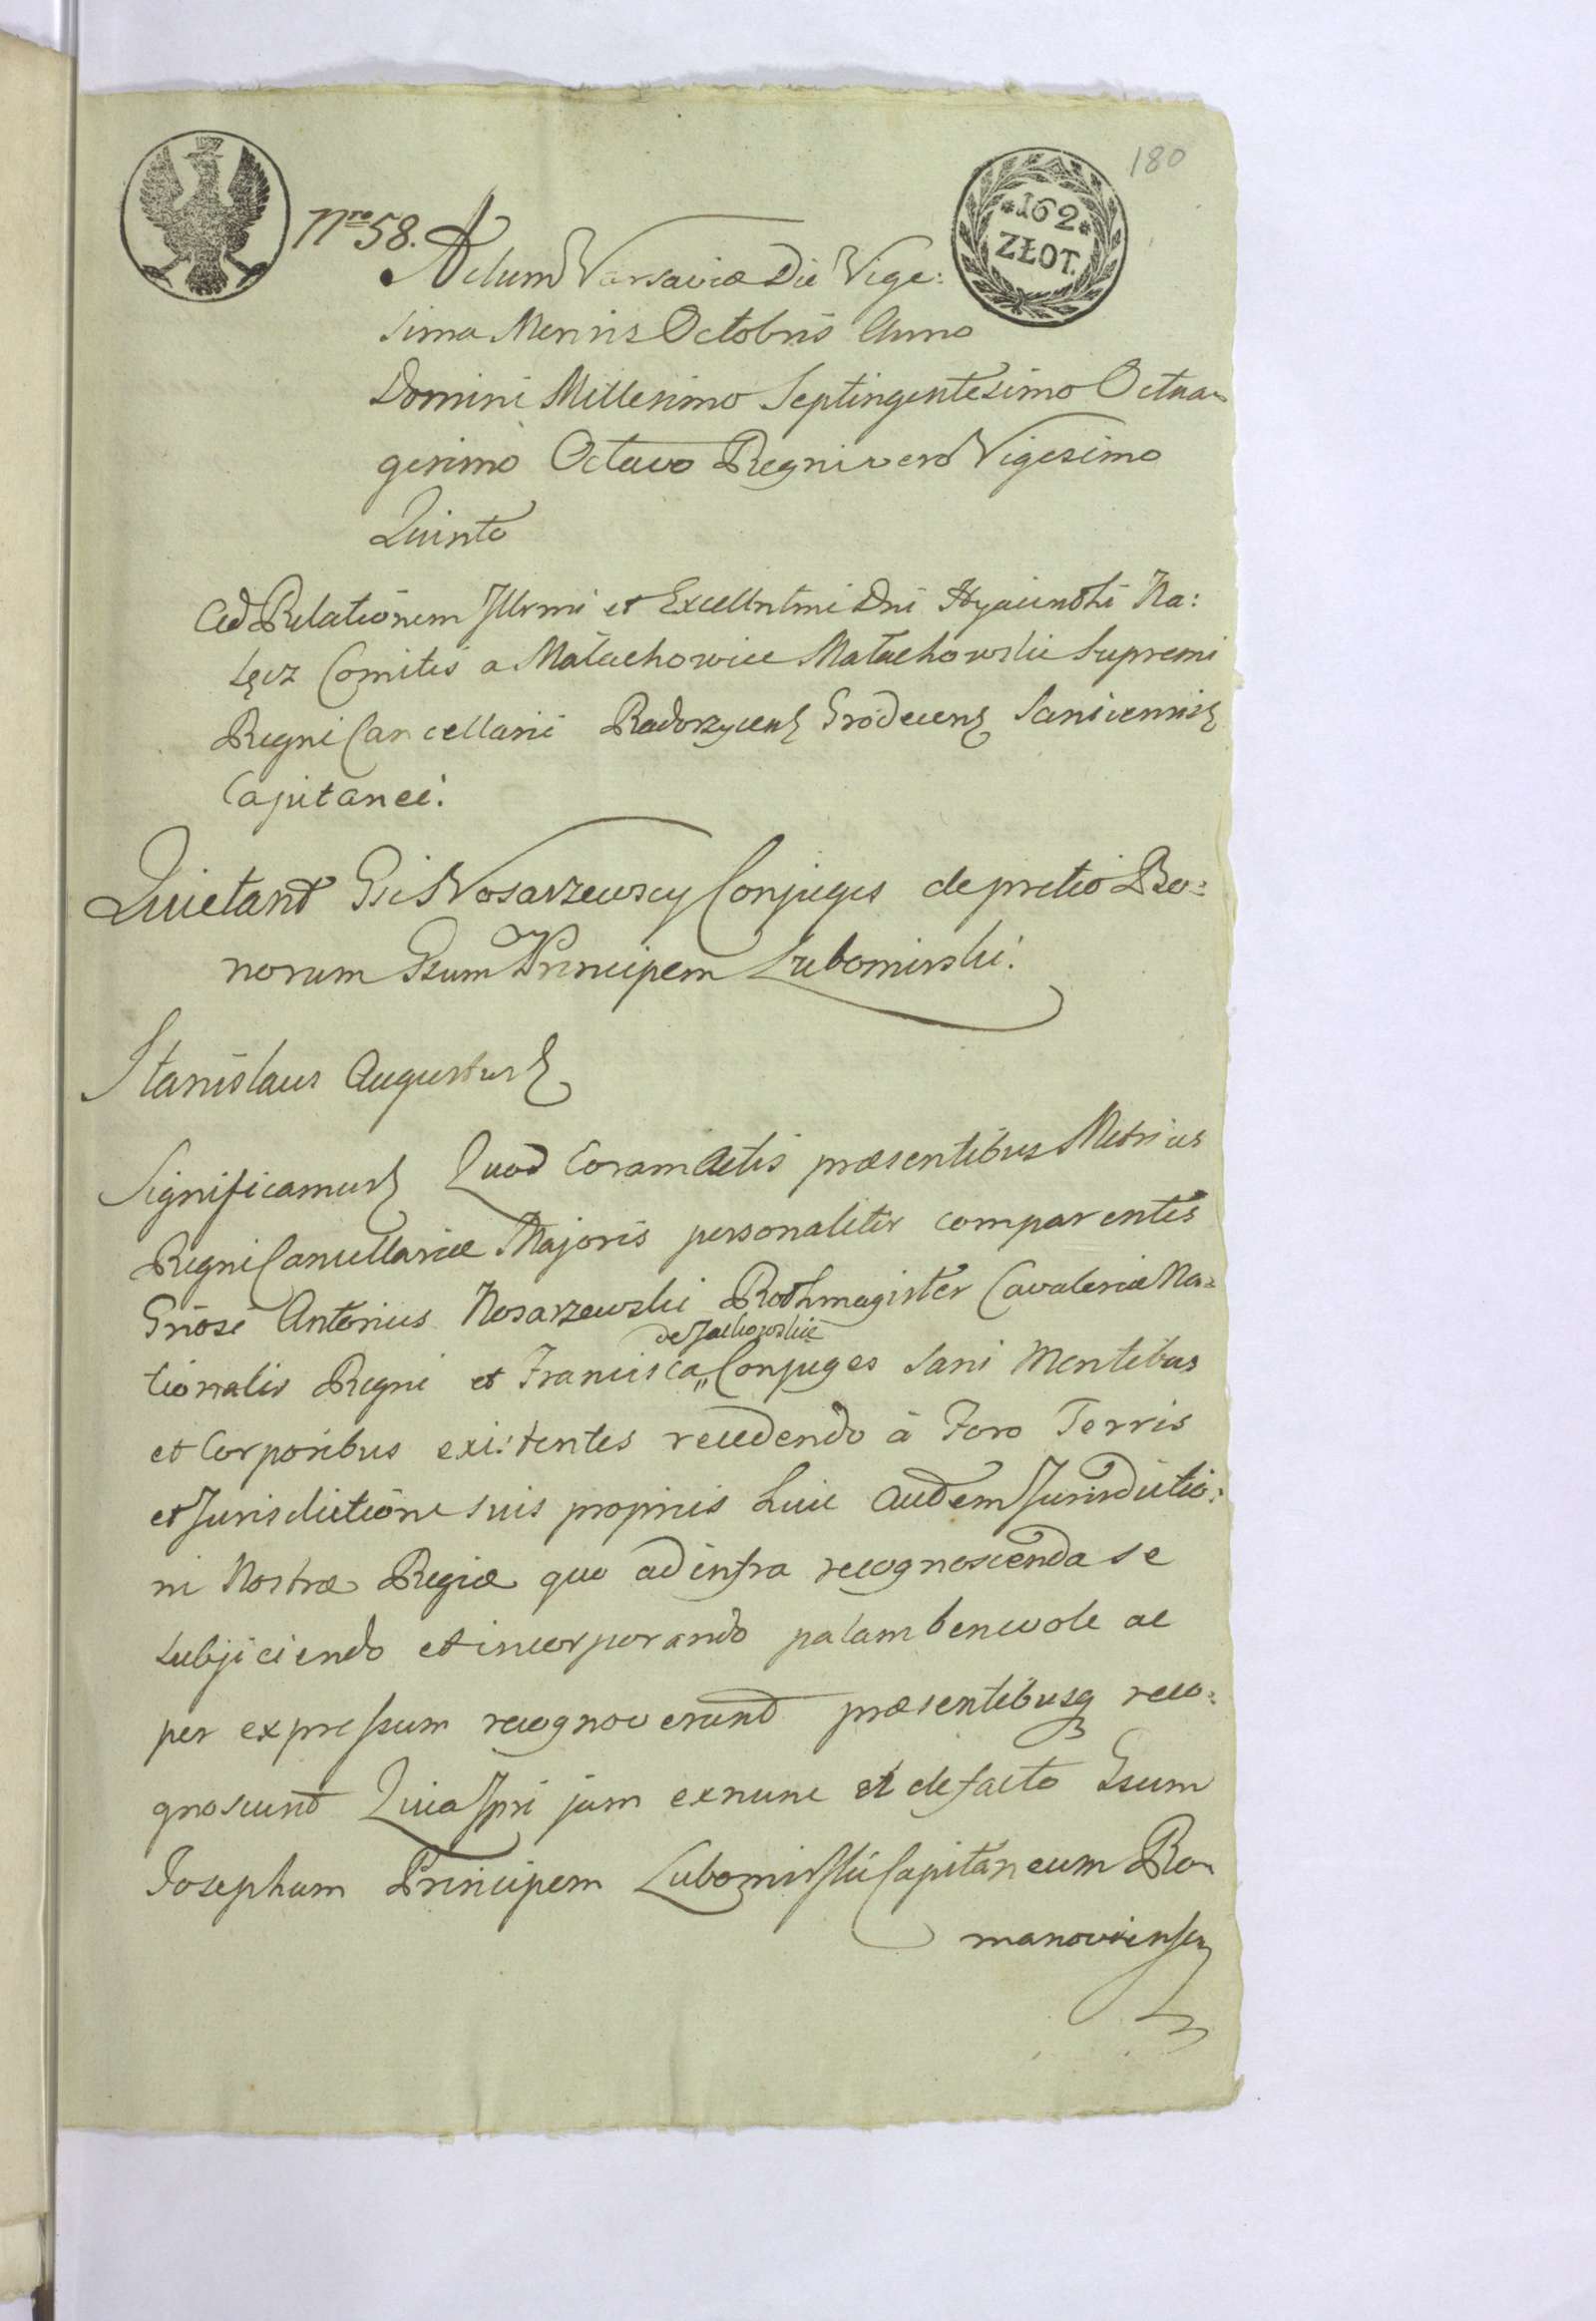 180
*162*
ZŁOT.
Nro 58. Actum Varsaviæ Die Vige:
sima Mensis Octobris Anno
Domini Millesimo Septingentesimo Octua-
gesimo Octavo Regni vero Vigesimo
Quinto
Ad Relationem Illrmi et Excellntmi Dni Hyacinthi Na:
łęcz Comitis a Małachowice Małachowski Supremi
Regni Cancellarii Radoszycens Grodecens Sanicennis
Capitanei.
Quietant Gsi Nosarzewscy Conjuges de pretio Bo:
norum Gsum Principem Lubomirski.
Stanislaus Augustus
Significamus Quod Coram Actis præsentibus Metrices
Regni Cancellariæ Majoris personaliter comparentes
Gnosi Antonius Nosarzewski Rothmagister Cavaleriæ Na:
de Jackowskie
tionalis Regni et Francisca „ Conjuges sani Mentibus
et Corporibus existentes recedendo à Foro Terris
et Jurisdictione suis propriis huic autem Jurisdictio:
ni Nostræ Regiæ quo ad infra recognoscenda se
subjiciendo et incorporando palam benevole ac
per expressum recognoverunt præsentibusq reco:
gnoscunt Quia Ipsi jam exnunc et defacto Gsum
Josephum Principem Lubomirski Capitaneum Ro-
manoviensem